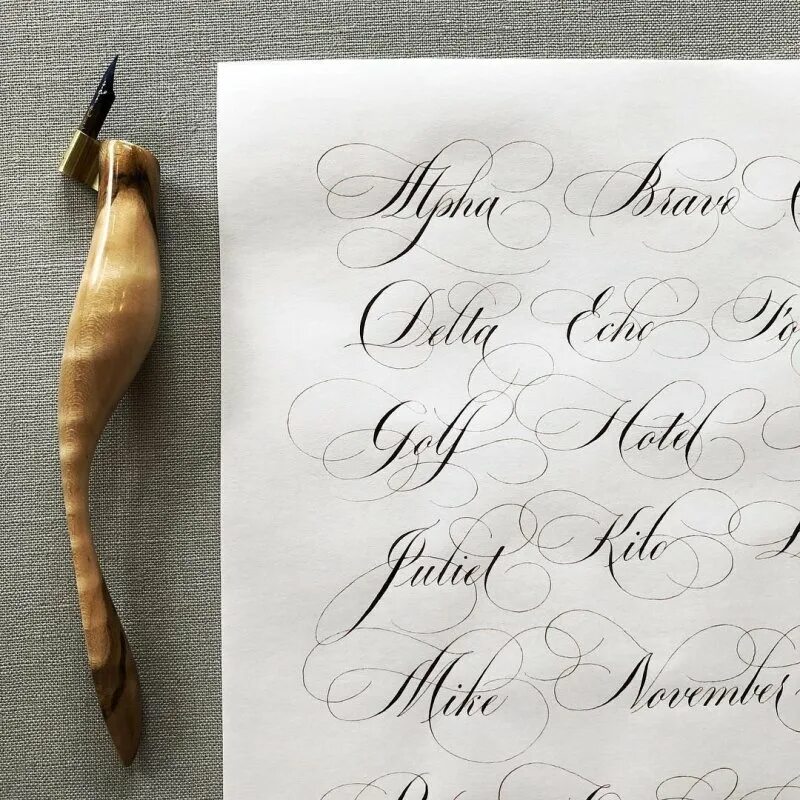 Alpha Bravo
Delta Echo Fo
Golf Hotel
Juliet Kilo
Mike November